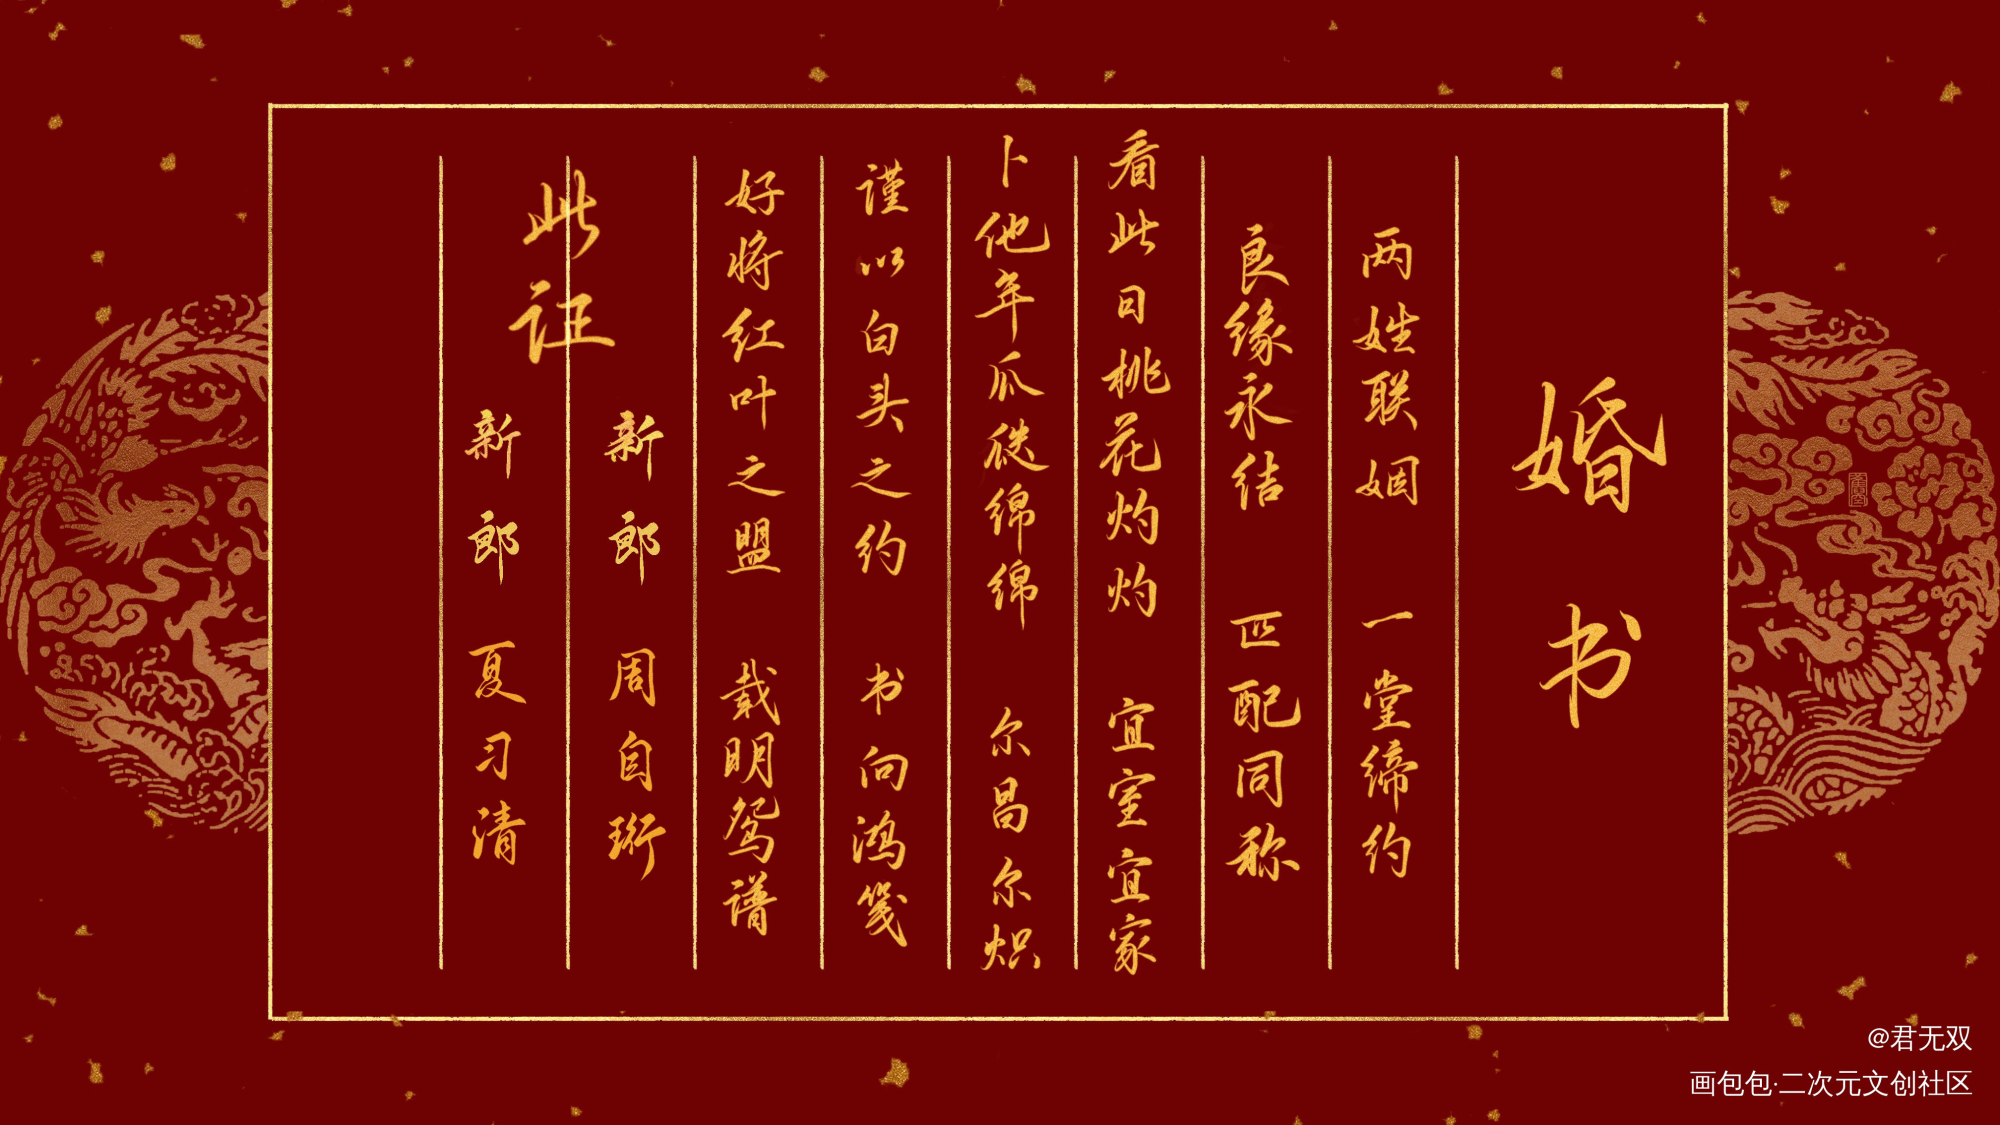 婚书
两姓联姻 一堂缔约
良缘永结 匹配同称
看此日桃花灼灼 宜室宜家
卜他年瓜瓞绵绵 尔昌尔炽
谨以白头之约 书向鸿笺
好将红叶之盟 载明鸳谱
此证
新郎 周自珩
新郎 夏习清
@君无双
画包包·二次元文创社区